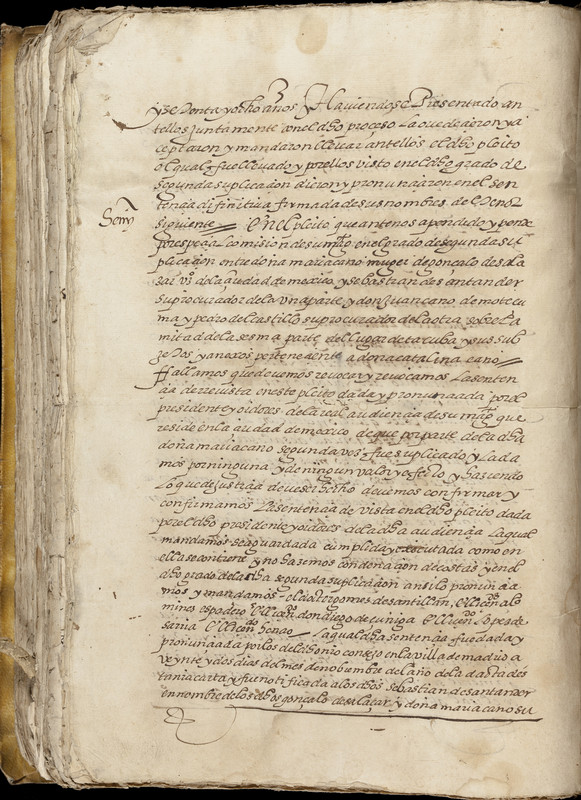 y sesenta y ocho años Haviendose Presentado an
tellos juntamente con el dho proceso Lo ovederon y a
ceptaron y mandaron llevar antellos el dho pleito
el qual fue llevado y por ellos visto en el dho grado de
segunda suplicacion dieron y pronunciaron en el sen
tencia difinitiva firmada de sus nombres del tenor
Senª
siguiente En el pleito que ante nos a pendido y pende
por especial comision de su magt en el grado de segunda su
plicacion entre doña maria cano muger de gonçalo de sala
zar vº de la ciudad de mexico y sebastian de santander
su procurador de la una parte y don Juan cano de motecu
ma y pedro del castillo su procurador de la otra sobre La
mitad de la sesma parte del lugar de tacuba y sus sub
jetos y anexos perteneciente a doña catalina cano
Fallamos que devemos revocar y revocamos La senten
cia de revista en este pleito dada y pronunciada por el
presidente y oidores de la real audiencia de su magt que
reside en la ciudad de mexico de que por parte de la dha
doña maria cano segunda vez fue suplicado y La da
mos por ninguna y de ningun valor y efecto y haziendo
Lo que de justicia deve ser hecho devemos confirmar y
confirmamos La sentencia de vista en el dho pleito dada
por el dho presidente y oidores de la dha audiencia La qual
mandamos sea guardada cumplida y executada como en
ella se contiene y no hazemos condenacion de costas y en el
dho grado de la dha segunda suplicacion ansi lo pronuncia
mos y mandamos el doctor gomez de santillan, El licendo alo
mines espadero El licendo don diego de cuniga El licendo Lopez de
saria El licendo henao La qual dha sentencia fue dada y
pronunciada por los del dho nro consejo en la villa de madrid a
veynte y dos dias del mes de nobiembre del año de la data des
ta nra carta y fue notificada a los dhos sebastian de santander
en nombre de los dhos gonçalo de salazar y doña maria cano su